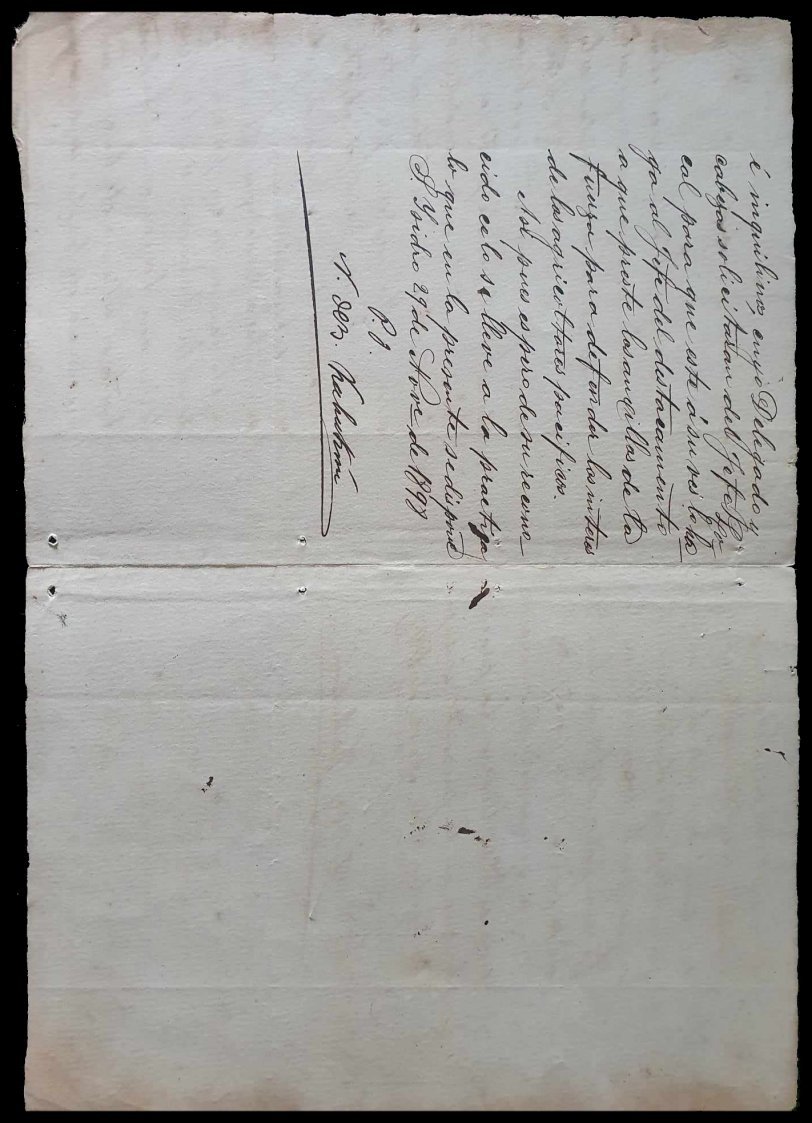 é inquilinos, cuyo Delegado y
cabezas solicitaran del Jefe lo
cal para que este á su ves lo ha
ga al Jefe del destacamento
a que preste los auxilios de la
fuerza para defender los interes
de los agricoltores pacificos.
Asi pues espero de su recono
cido celo se lleve a la practica
lo que en la presente se dispone
S. Ysidro 29 de Nove de 1898
P. J.